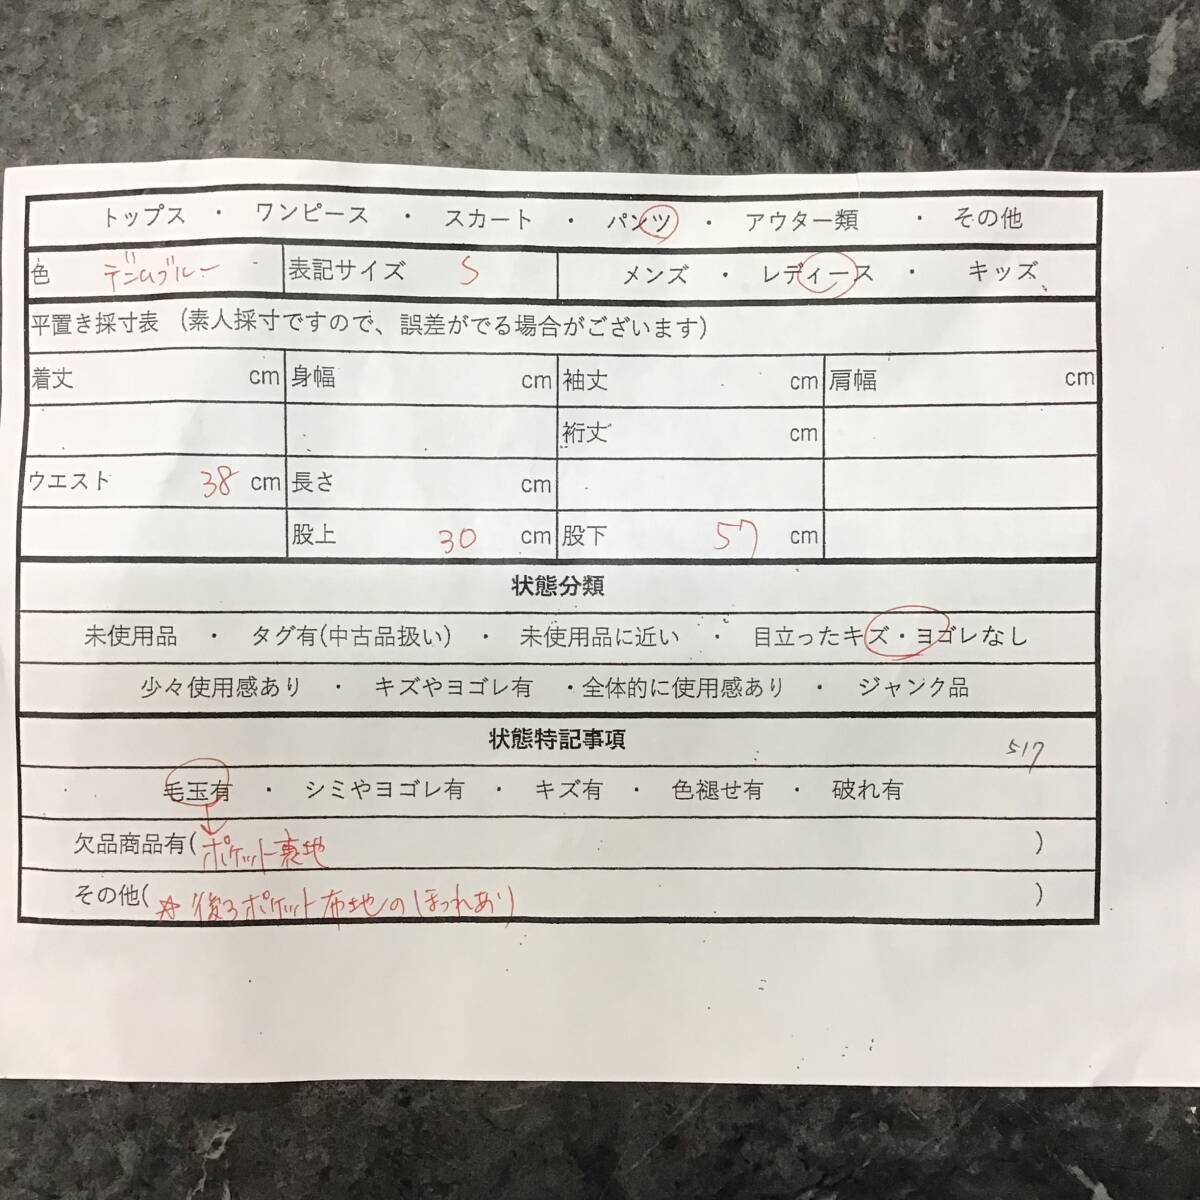 トップス ・ ワンピース ・ スカート ・ パンツ ・ アウター類 ・ その他
色 デニムブルー 表記サイズ S メンズ ・ レディース ・ キッズ
平置き採寸表 （素人採寸ですので、誤差がでる場合がございます）
着丈 cm 身幅 cm 袖丈 cm 肩幅 cm
裄丈 cm
ウエスト 38 cm 長さ cm
股上 30 cm 股下 57 cm
状態分類
未使用品 ・ タグ有(中古品扱い) ・ 未使用品に近い ・ 目立ったキズ・ヨゴレなし
少々使用感あり ・ キズやヨゴレ有 ・全体的に使用感あり ・ ジャンク品
状態特記事項 517
毛玉有 ・ シミやヨゴレ有 ・ キズ有 ・ 色褪せ有 ・ 破れ有
欠品商品有(ポケット裏地 )
その他( ☆後ろポケット布地のほつれあり )